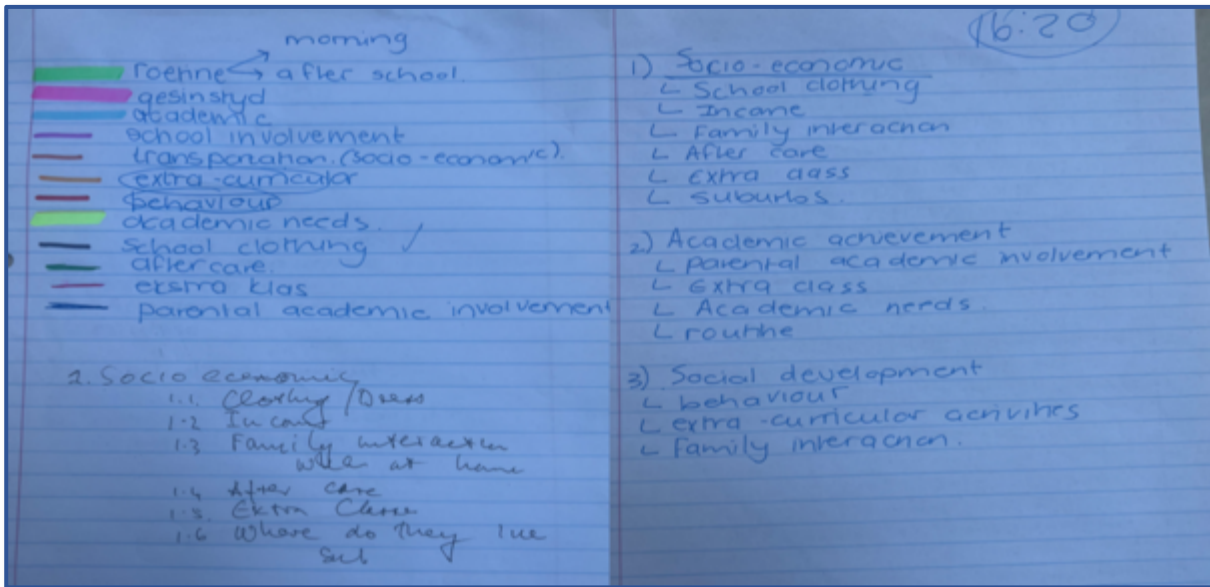 morning
roetine after school
gesinstyd
academic
school involvement
transportation. (socio-economic).
extra-curricular
behaviour
academic needs.
school clothing ✓
aftercare.
ekstra klas
parental academic involvement
2. Socio economic
1.1. Clothing / Dress
1.2 Income
1.3 Family interaction
when at home
1.4 After care
1.5. Extra Classe
1.6 Where do they live
Sub
16:20
1) Socio-economic
School clothing
Income
Family interaction
After care
Extra class
suburbs.
2) Academic achievement
parental academic involvement
Extra class
Academic needs.
routine
3) Social development
behaviour
extra-curricular activities
Family interaction.